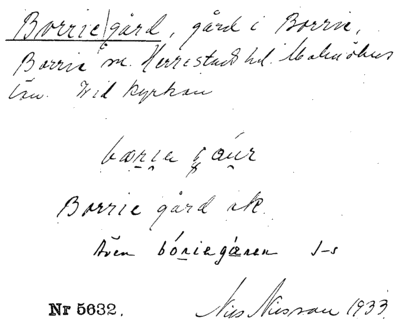 Borrie|gård, gård i Borrie,
Borrie sn. Herrestads hd. Malmöhus
län. Vid kyrkan
Borrie gård rk
Även
Nr 5632. Nils Nilsson 1933